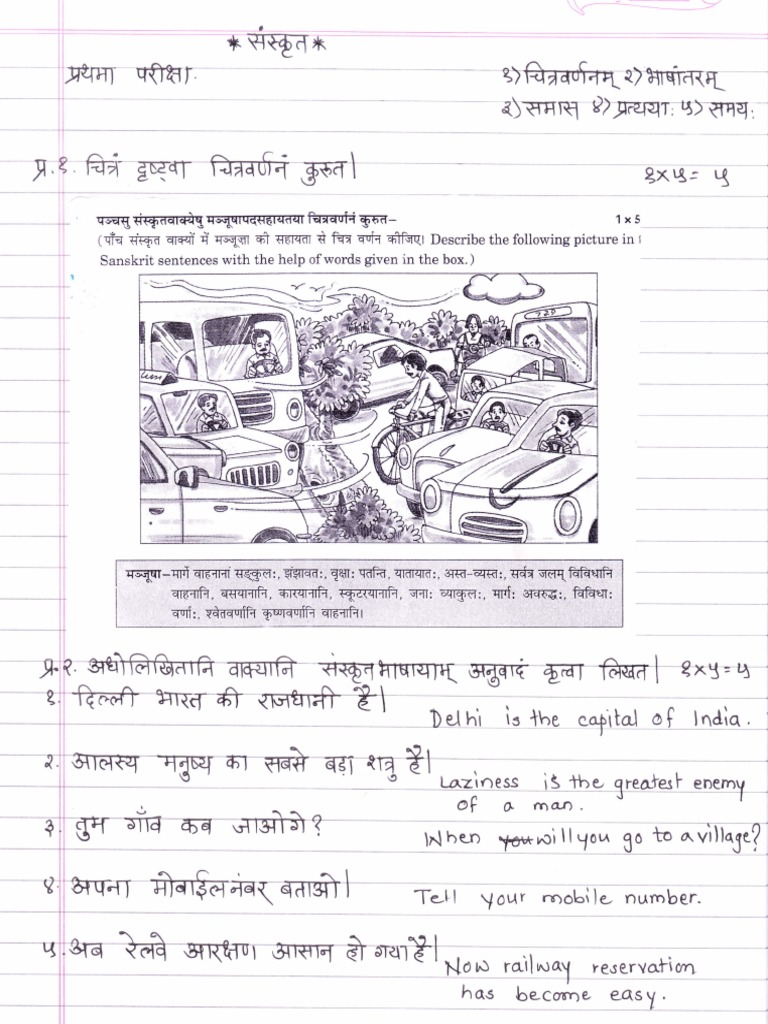 * संस्कृत *
प्रथमा परीक्षा.
१) चित्रवर्णनम् २) भाषांतरम्
३) समास ४) प्रत्ययाः ५) समयः
प्र.१. चित्रं दृष्ट्वा चित्रवर्णनं कुरुत| १x५= ५
पञ्चसु संस्कृतवाक्येषु मञ्जूषापदसहायतया चित्रवर्णनं कुरुत– 1 x 5
(पाँच संस्कृत वाक्यों में मञ्जूषा की सहायता से चित्र वर्णन कीजिए। Describe the following picture in
Sanskrit sentences with the help of words given in the box.)
मञ्जूषा–मार्गे वाहनानां सङ्कुलः, झंझावतः, वृक्षाः पतन्ति, यातायातः, अस्त-व्यस्तः, सर्वत्र जलम् विविधानि
वाहनानि, बसयानानि, कारयानानि, स्कूटरयानानि, जनाः व्याकुलः, मार्गः अवरुद्धः, विविधाः
वर्णाः, श्वेतवर्णानि कृष्णवर्णानि वाहनानि।
प्र.२. अधोलिखितानि वाक्यानि संस्कृतभाषायाम् अनुवादं कृत्वा लिखत| १x५=५
१. दिल्ली भारत की राजधानी है|
Delhi is the capital of India.
२. आलस्य मनुष्य का सबसे बड़ा शत्रु है|
Laziness is the greatest enemy
of a man.
३. तुम गाँव कब जाओगे?
When will you go to a village?
४. अपना मोबाईलनंबर बताओ|
Tell your mobile number.
५. अब रेलवे आरक्षण आसान हो गया है|
Now railway reservation
has become easy.